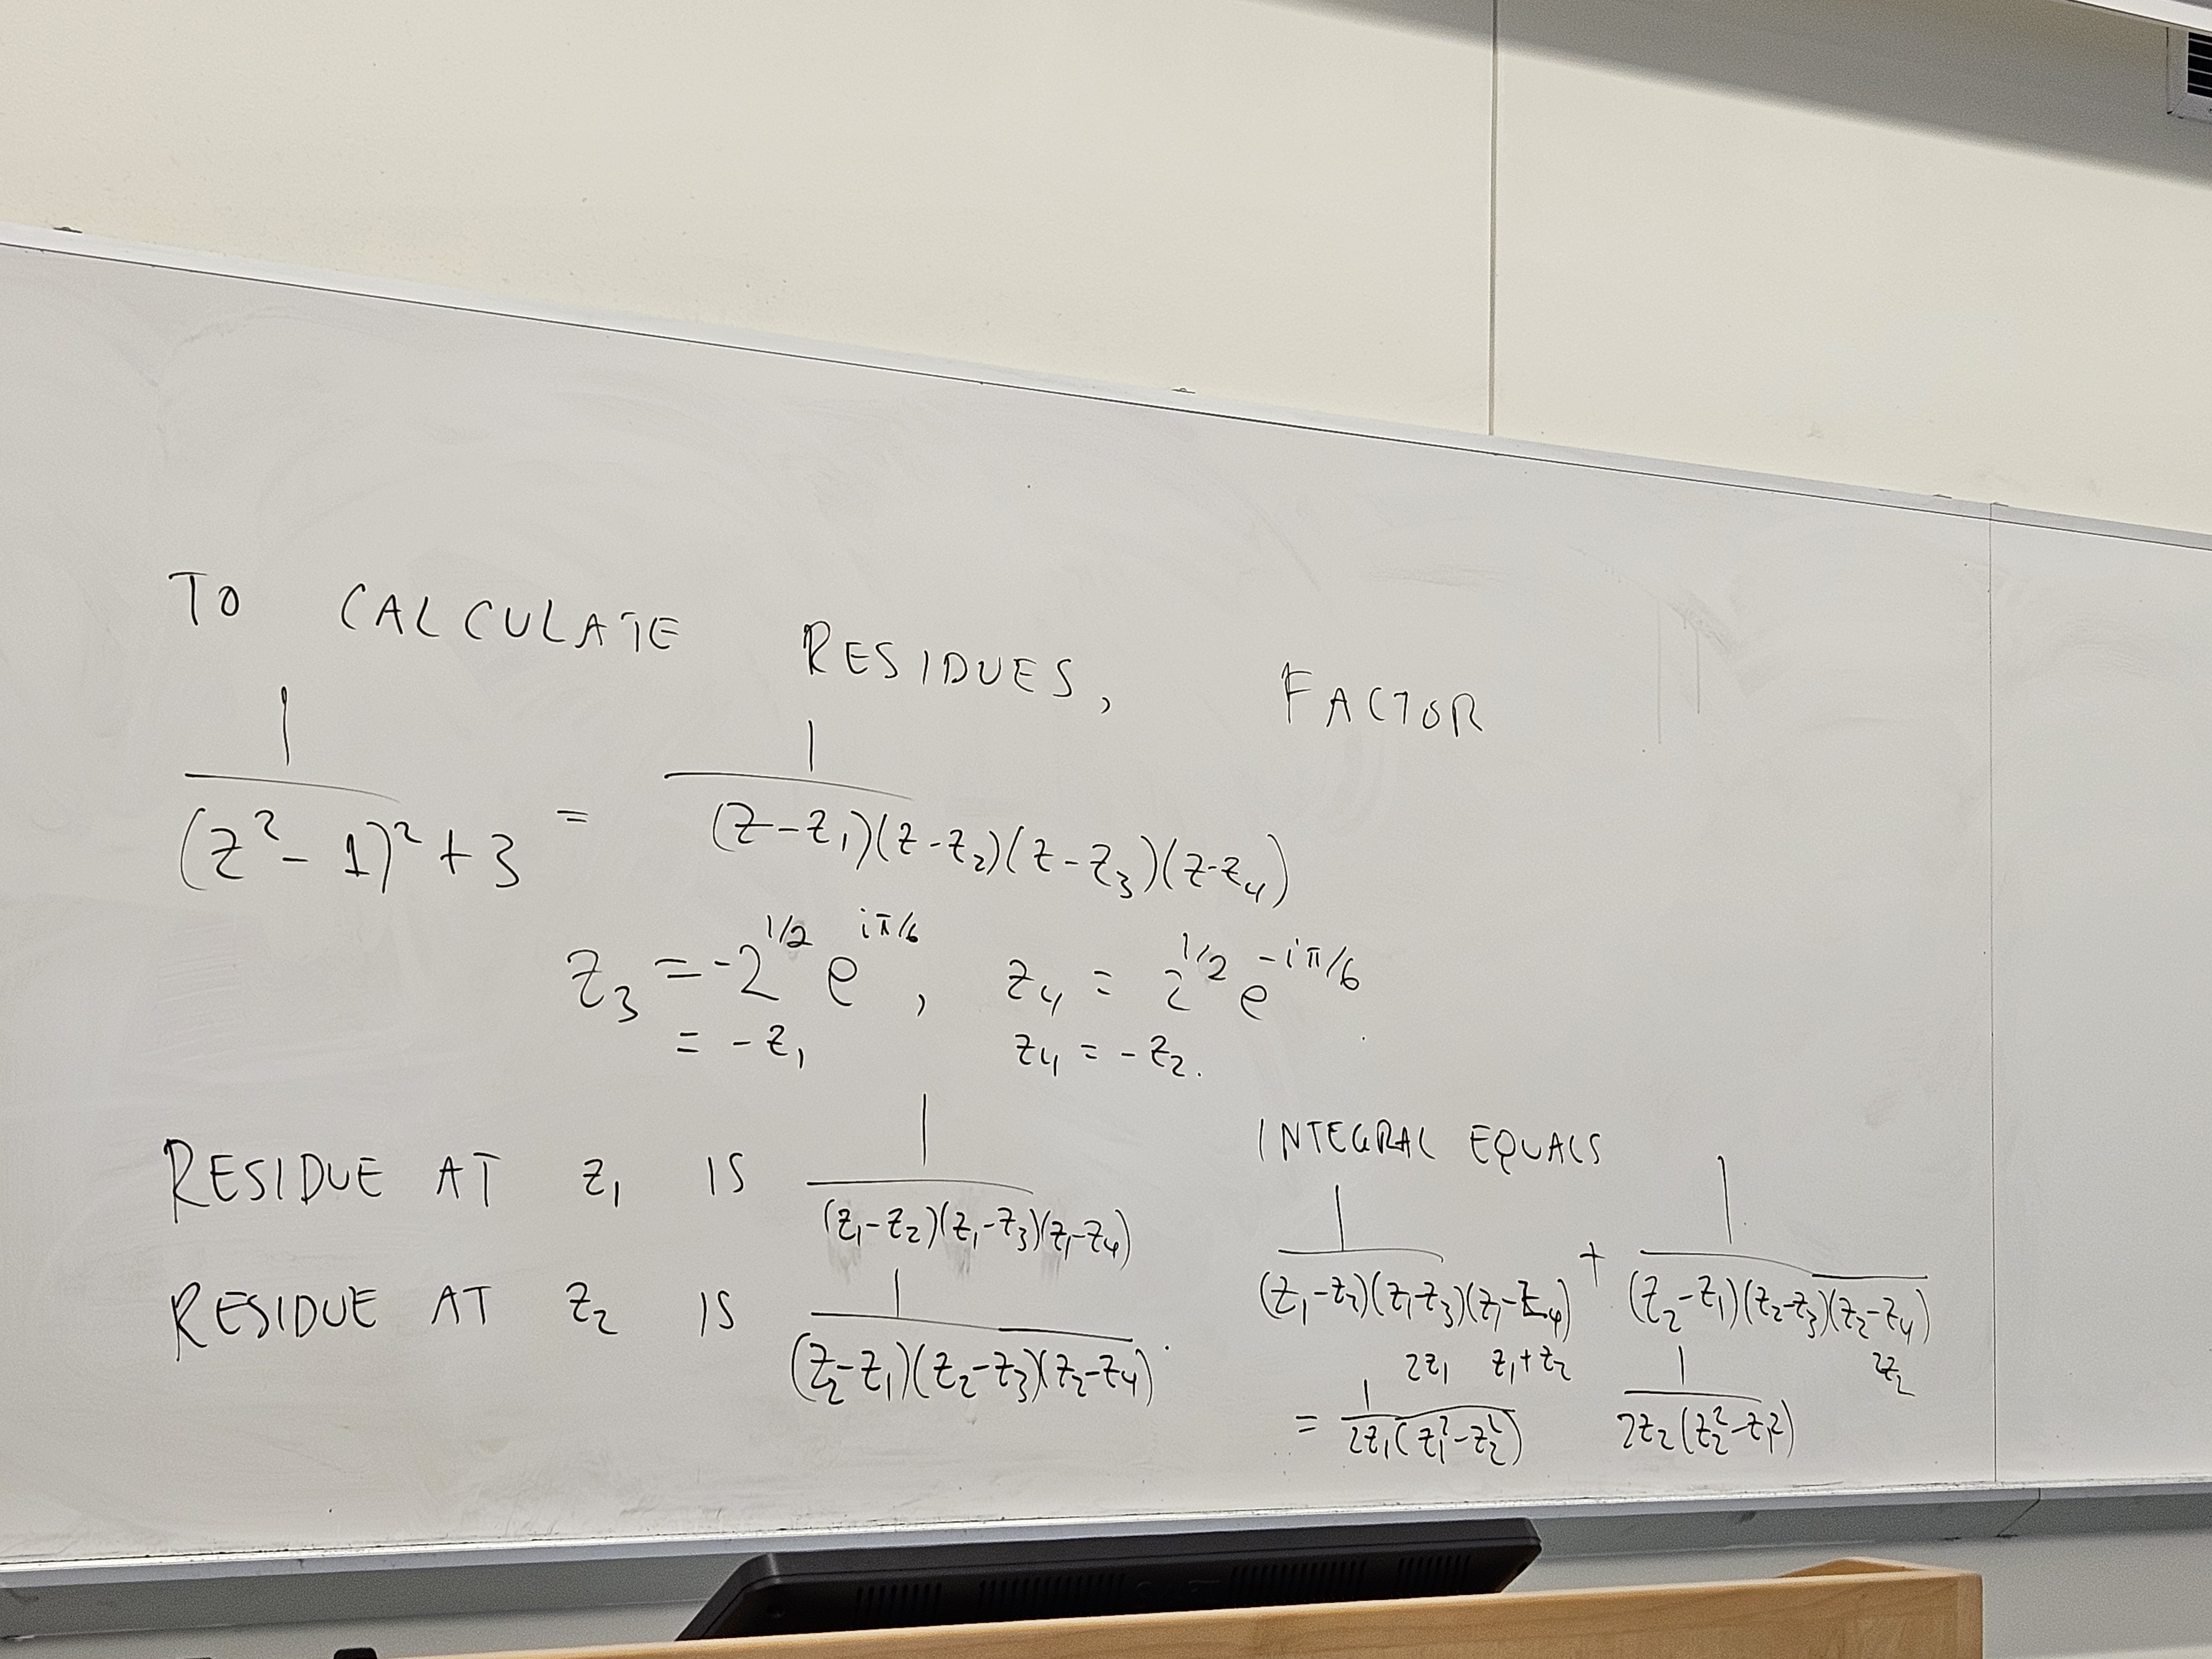 TO CALCULATE RESIDUES, FACTOR
1/((z² - 1)² + 3) = 1/((z-z₁)(z-z₂)(z-z₃)(z-z₄))
z₃ = -2^(1/2) e^(iπ/6), z₄ = 2^(1/2) e^(-iπ/6)
= -z₁ z₄ = -z₂.
RESIDUE AT z₁ IS 1/((z₁-z₂)(z₁-z₃)(z₁-z₄))
RESIDUE AT z₂ IS 1/((z₂-z₁)(z₂-z₃)(z₂-z₄)).
INTEGRAL EQUALS
1/((z₁-z₂)(z₁-z₃)(z₁-z₄)) + 1/((z₂-z₁)(z₂-z₃)(z₂-z₄))
2z₁ z₁+z₂ 2z₂
= 1/(2z₁(z₁²-z₂²)) 1/(2z₂(z₂²-z₁²))